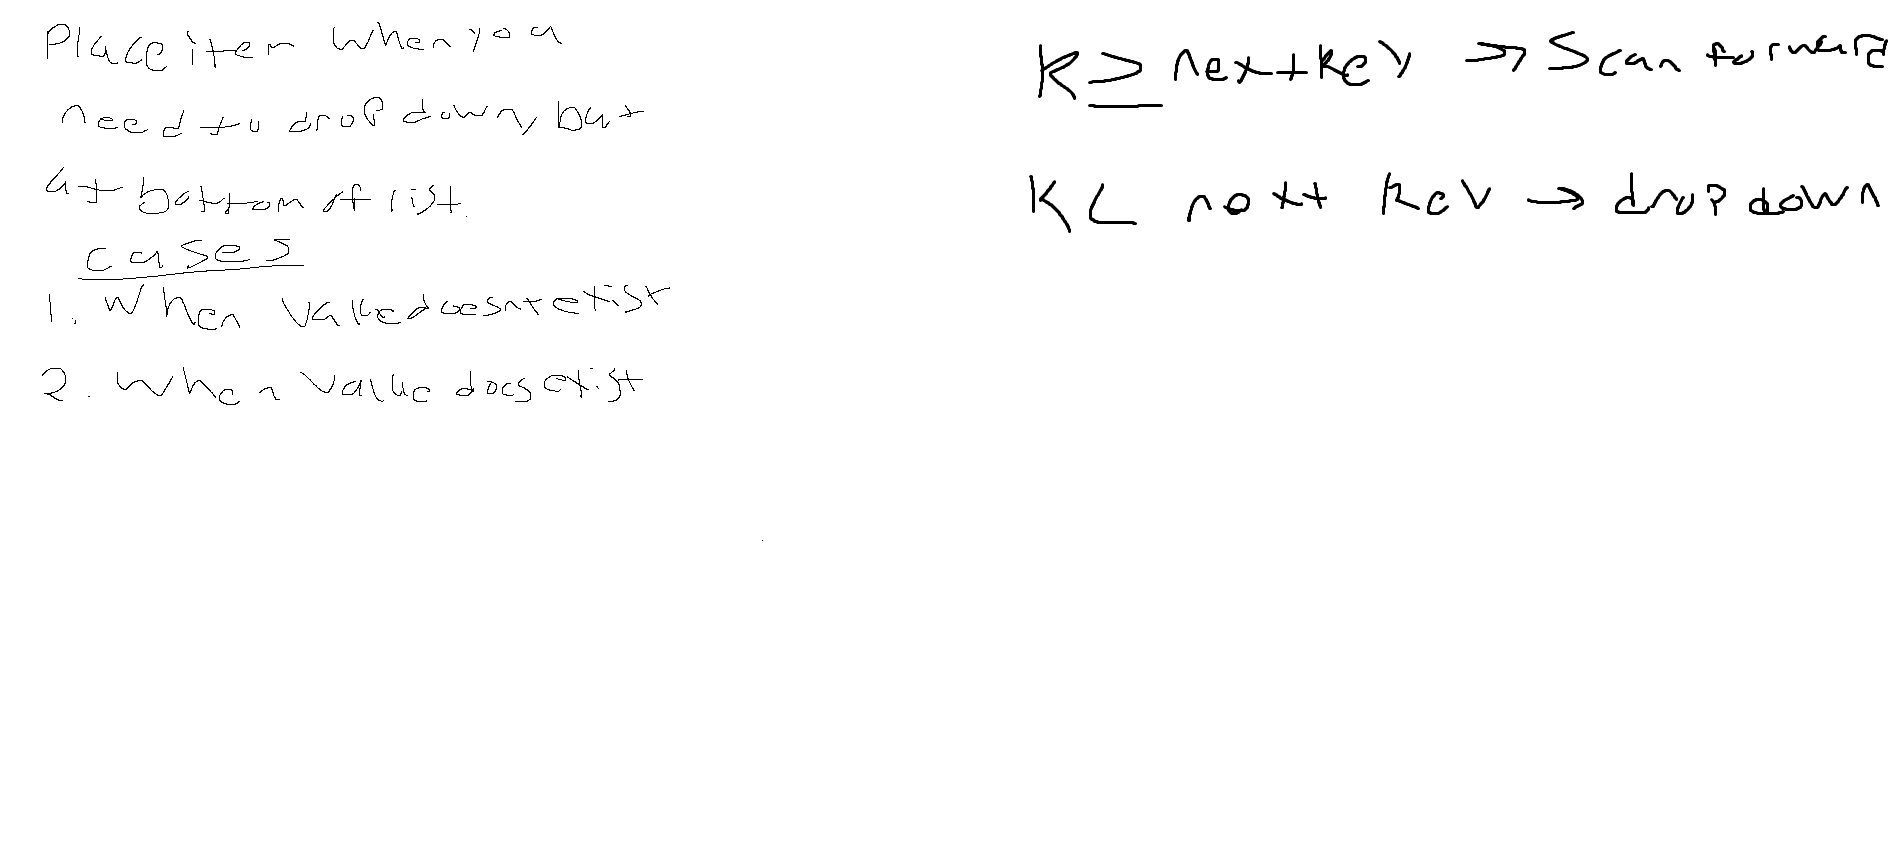 Place item when you
need to drop down, but
at bottom of list.
cases
1. When value doesnt exist
2. When value does exist
K ≥ nextkey → Scan forward
K < next key → drop down